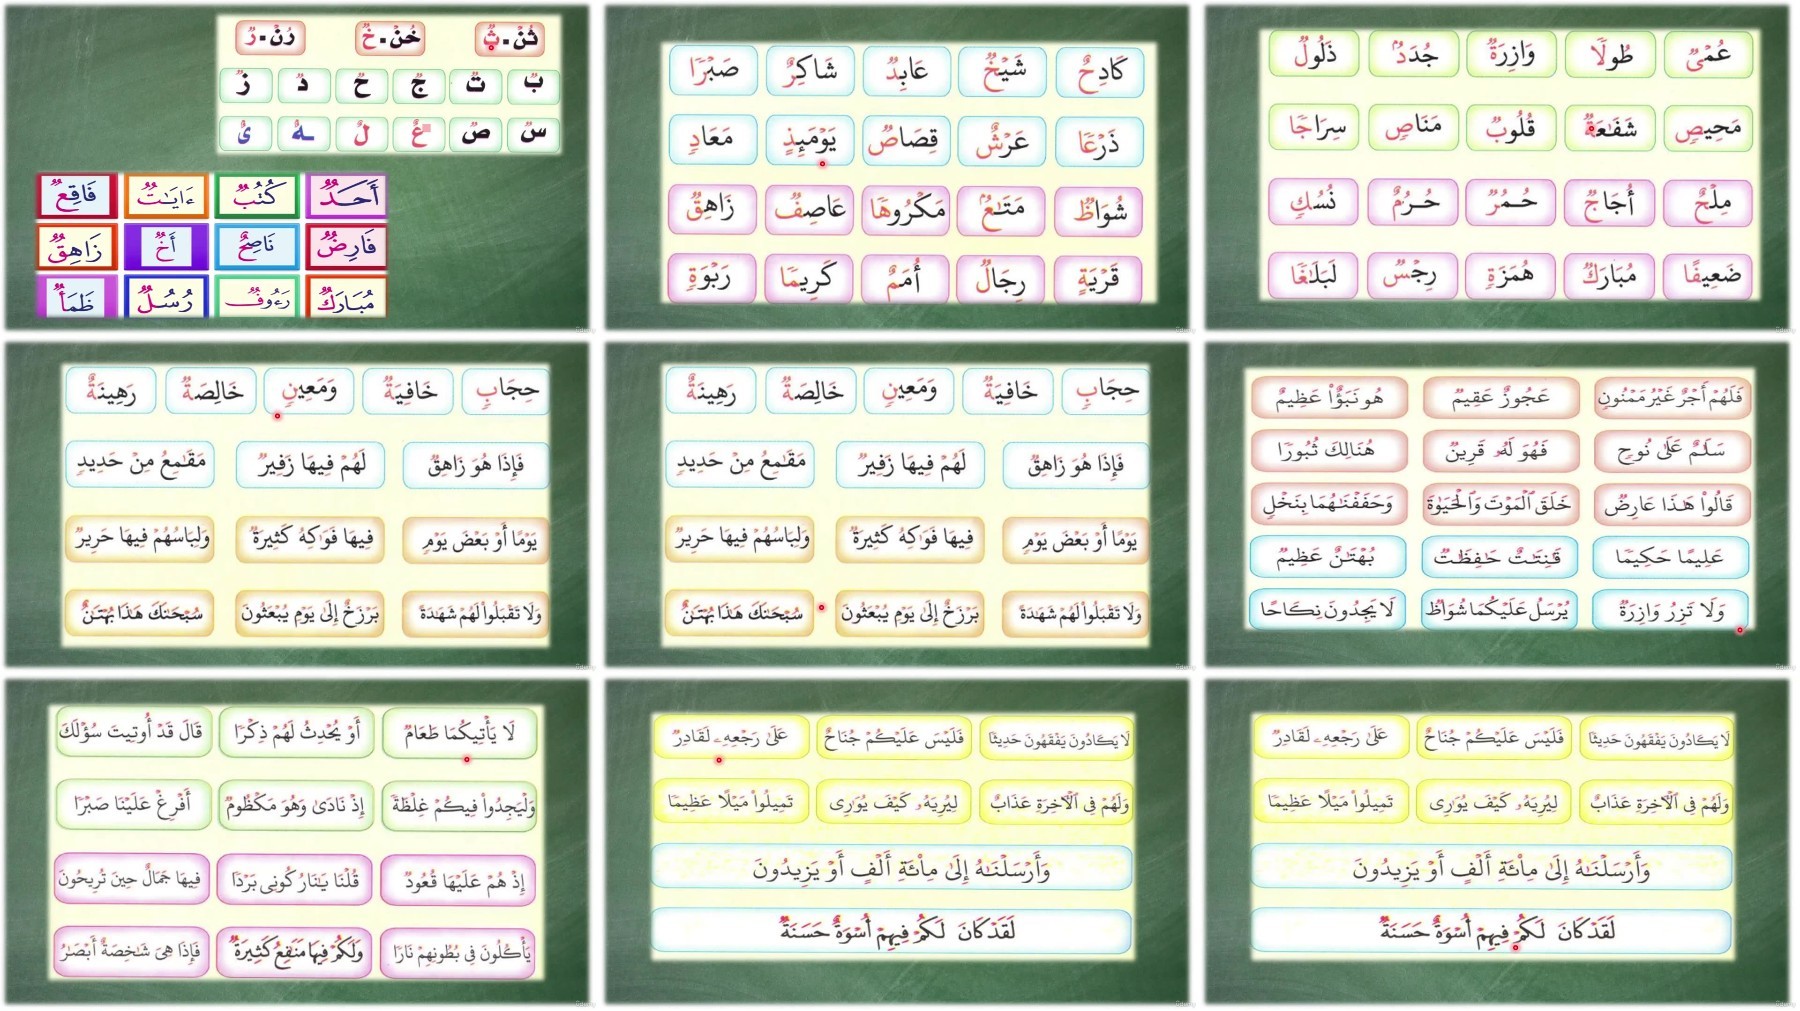 ثُنْ . ثٌ خُنْ . خٌ رُنْ . رٌ
بٌ تٌ جٌ حٌ دٌ زٌ
سٌ صٌ عٌ لٌ ـهٌ ىٌ
أَحَدٌ كُتُبٌ ءَايَٰتٌ فَاقِعٌ
فَارِضٌ نَاصِحٌ أَخٌ زَاهِقٌ
مُبَارَكٌ رَءُوفٌ رُسُلٌ ظَمَأٌ
كَادِحٌ شَيْخٌ عَابِدٌ شَاكِرٌ صَبْرًا
ذَرْعًا عَرْشٌ قِصَاصٌ يَوْمَئِذٍ مَعَادٍ
شُوَاظٌ مَتَٰعٌ مَكْرُوهًا عَاصِفٌ زَاهِقٌ
قَرْيَةٍ رِجَالٌ أُمَمٌ كَرِيمًا رَبْوَةٍ
عُمْىٌ طُولًا وَازِرَةٌ جُدَدٌ ذَلُولٌ
مَحِيصٍ شَفَٰعَةٌ قُلُوبٌ مَنَاصٍ سِرَاجًا
مِلْحٌ أُجَاجٌ حُمُرٌ حُرُمٌ نُسُكٍ
ضَعِيفًا مُبَارَكٌ هُمَزَةٍ رِجْسٌ لَبَلَٰغًا
حِجَابٍ خَافِيَةٌ وَمَعِينٍ خَالِصَةٌ رَهِينَةٌ
فَإِذَا هُوَ زَاهِقٌ لَهُمْ فِيهَا زَفِيرٌ مَقَٰمِعُ مِنْ حَدِيدٍ
يَوْمًا أَوْ بَعْضَ يَوْمٍ فِيهَا فَوَٰكِهُ كَثِيرَةٌ وَلِبَاسُهُمْ فِيهَا حَرِيرٌ
وَلَا تَقْبَلُوا۟ لَهُمْ شَهَٰدَةً بَرْزَخٌ إِلَىٰ يَوْمِ يُبْعَثُونَ سُبْحَٰنَكَ هَٰذَا بُهْتَٰنٌ
حِجَابٍ خَافِيَةٌ وَمَعِينٍ خَالِصَةٌ رَهِينَةٌ
فَإِذَا هُوَ زَاهِقٌ لَهُمْ فِيهَا زَفِيرٌ مَقَٰمِعُ مِنْ حَدِيدٍ
يَوْمًا أَوْ بَعْضَ يَوْمٍ فِيهَا فَوَٰكِهُ كَثِيرَةٌ وَلِبَاسُهُمْ فِيهَا حَرِيرٌ
وَلَا تَقْبَلُوا۟ لَهُمْ شَهَٰدَةً بَرْزَخٌ إِلَىٰ يَوْمِ يُبْعَثُونَ سُبْحَٰنَكَ هَٰذَا بُهْتَٰنٌ
فَلَهُمْ أَجْرٌ غَيْرُ مَمْنُونٍ عَجُوزٌ عَقِيمٌ هُو نَبَؤٌا۟ عَظِيمٌ
سَلَٰمٌ عَلَىٰ نُوحٍ فَهُوَ لَهُۥ قَرِينٌ هُنَالِكَ ثُبُورًا
قَالُوا۟ هَٰذَا عَارِضٌ خَلَقَ ٱلْمَوْتَ وَٱلْحَيَوٰةَ وَحَفَفْنَٰهُمَا بِنَخْلٍ
عَلِيمًا حَكِيمًا قَٰنِتَٰتٌ حَٰفِظَٰتٌ بُهْتَٰنٌ عَظِيمٌ
وَلَا تَزِرُ وَازِرَةٌ يُرْسَلُ عَلَيْكُمَا شُوَاظٌ لَا يَجِدُونَ نِكَاحًا
لَا يَأْتِيكُمَا طَعَامٌ أَوْ يُحْدِثُ لَهُمْ ذِكْرًا قَالَ قَدْ أُوتِيتَ سُؤْلَكَ
وَلْيَجِدُوا۟ فِيكُمْ غِلْظَةً إِذْ نَادَىٰ وَهُوَ مَكْظُومٌ أَفْرِغْ عَلَيْنَا صَبْرًا
إِذْ هُمْ عَلَيْهَا قُعُودٌ قُلْنَا يَٰنَارُ كُونِى بَرْدًا فِيهَا جَمَالٌ حِينَ تُرِيحُونَ
يَأْكُلُونَ فِى بُطُونِهِمْ نَارًا وَلَكُمْ فِيهَا مَنَٰفِعُ كَثِيرَةٌ فَإِذَا هِىَ شَٰخِصَةٌ أَبْصَٰرُ
لَا يَكَادُونَ يَفْقَهُونَ حَدِيثًا فَلَيْسَ عَلَيْكُمْ جُنَاحٌ عَلَىٰ رَجْعِهِۦ لَقَادِرٌ
وَلَهُمْ فِى ٱلْآخِرَةِ عَذَابٌ لِيُرِيَهُۥ كَيْفَ يُوَٰرِى تَمِيلُوا۟ مَيْلًا عَظِيمًا
وَأَرْسَلْنَٰهُ إِلَىٰ مِا۟ئَةِ أَلْفٍ أَوْ يَزِيدُونَ
لَقَدْ كَانَ لَكُمْ فِيهِمْ أُسْوَةٌ حَسَنَةٌ
لَا يَكَادُونَ يَفْقَهُونَ حَدِيثًا فَلَيْسَ عَلَيْكُمْ جُنَاحٌ عَلَىٰ رَجْعِهِۦ لَقَادِرٌ
وَلَهُمْ فِى ٱلْآخِرَةِ عَذَابٌ لِيُرِيَهُۥ كَيْفَ يُوَٰرِى تَمِيلُوا۟ مَيْلًا عَظِيمًا
وَأَرْسَلْنَٰهُ إِلَىٰ مِا۟ئَةِ أَلْفٍ أَوْ يَزِيدُونَ
لَقَدْ كَانَ لَكُمْ فِيهِمْ أُسْوَةٌ حَسَنَةٌ